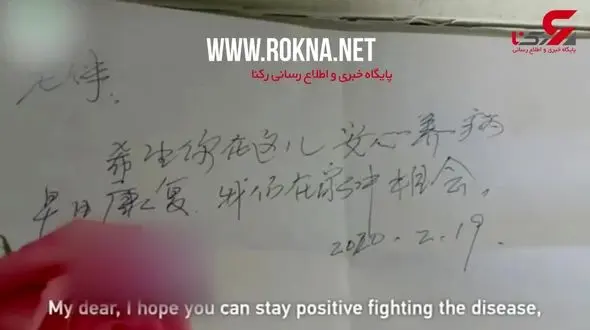 WWW.ROKNA.NET
پایگاه خبری و اطلاع رسانی رکنا
رکنا
پایگاه خبری و اطلاع رسانی
希望你在这儿安心养病
早日康复.我们在家中相会。
2020.2.19.
My dear, I hope you can stay positive fighting the disease,